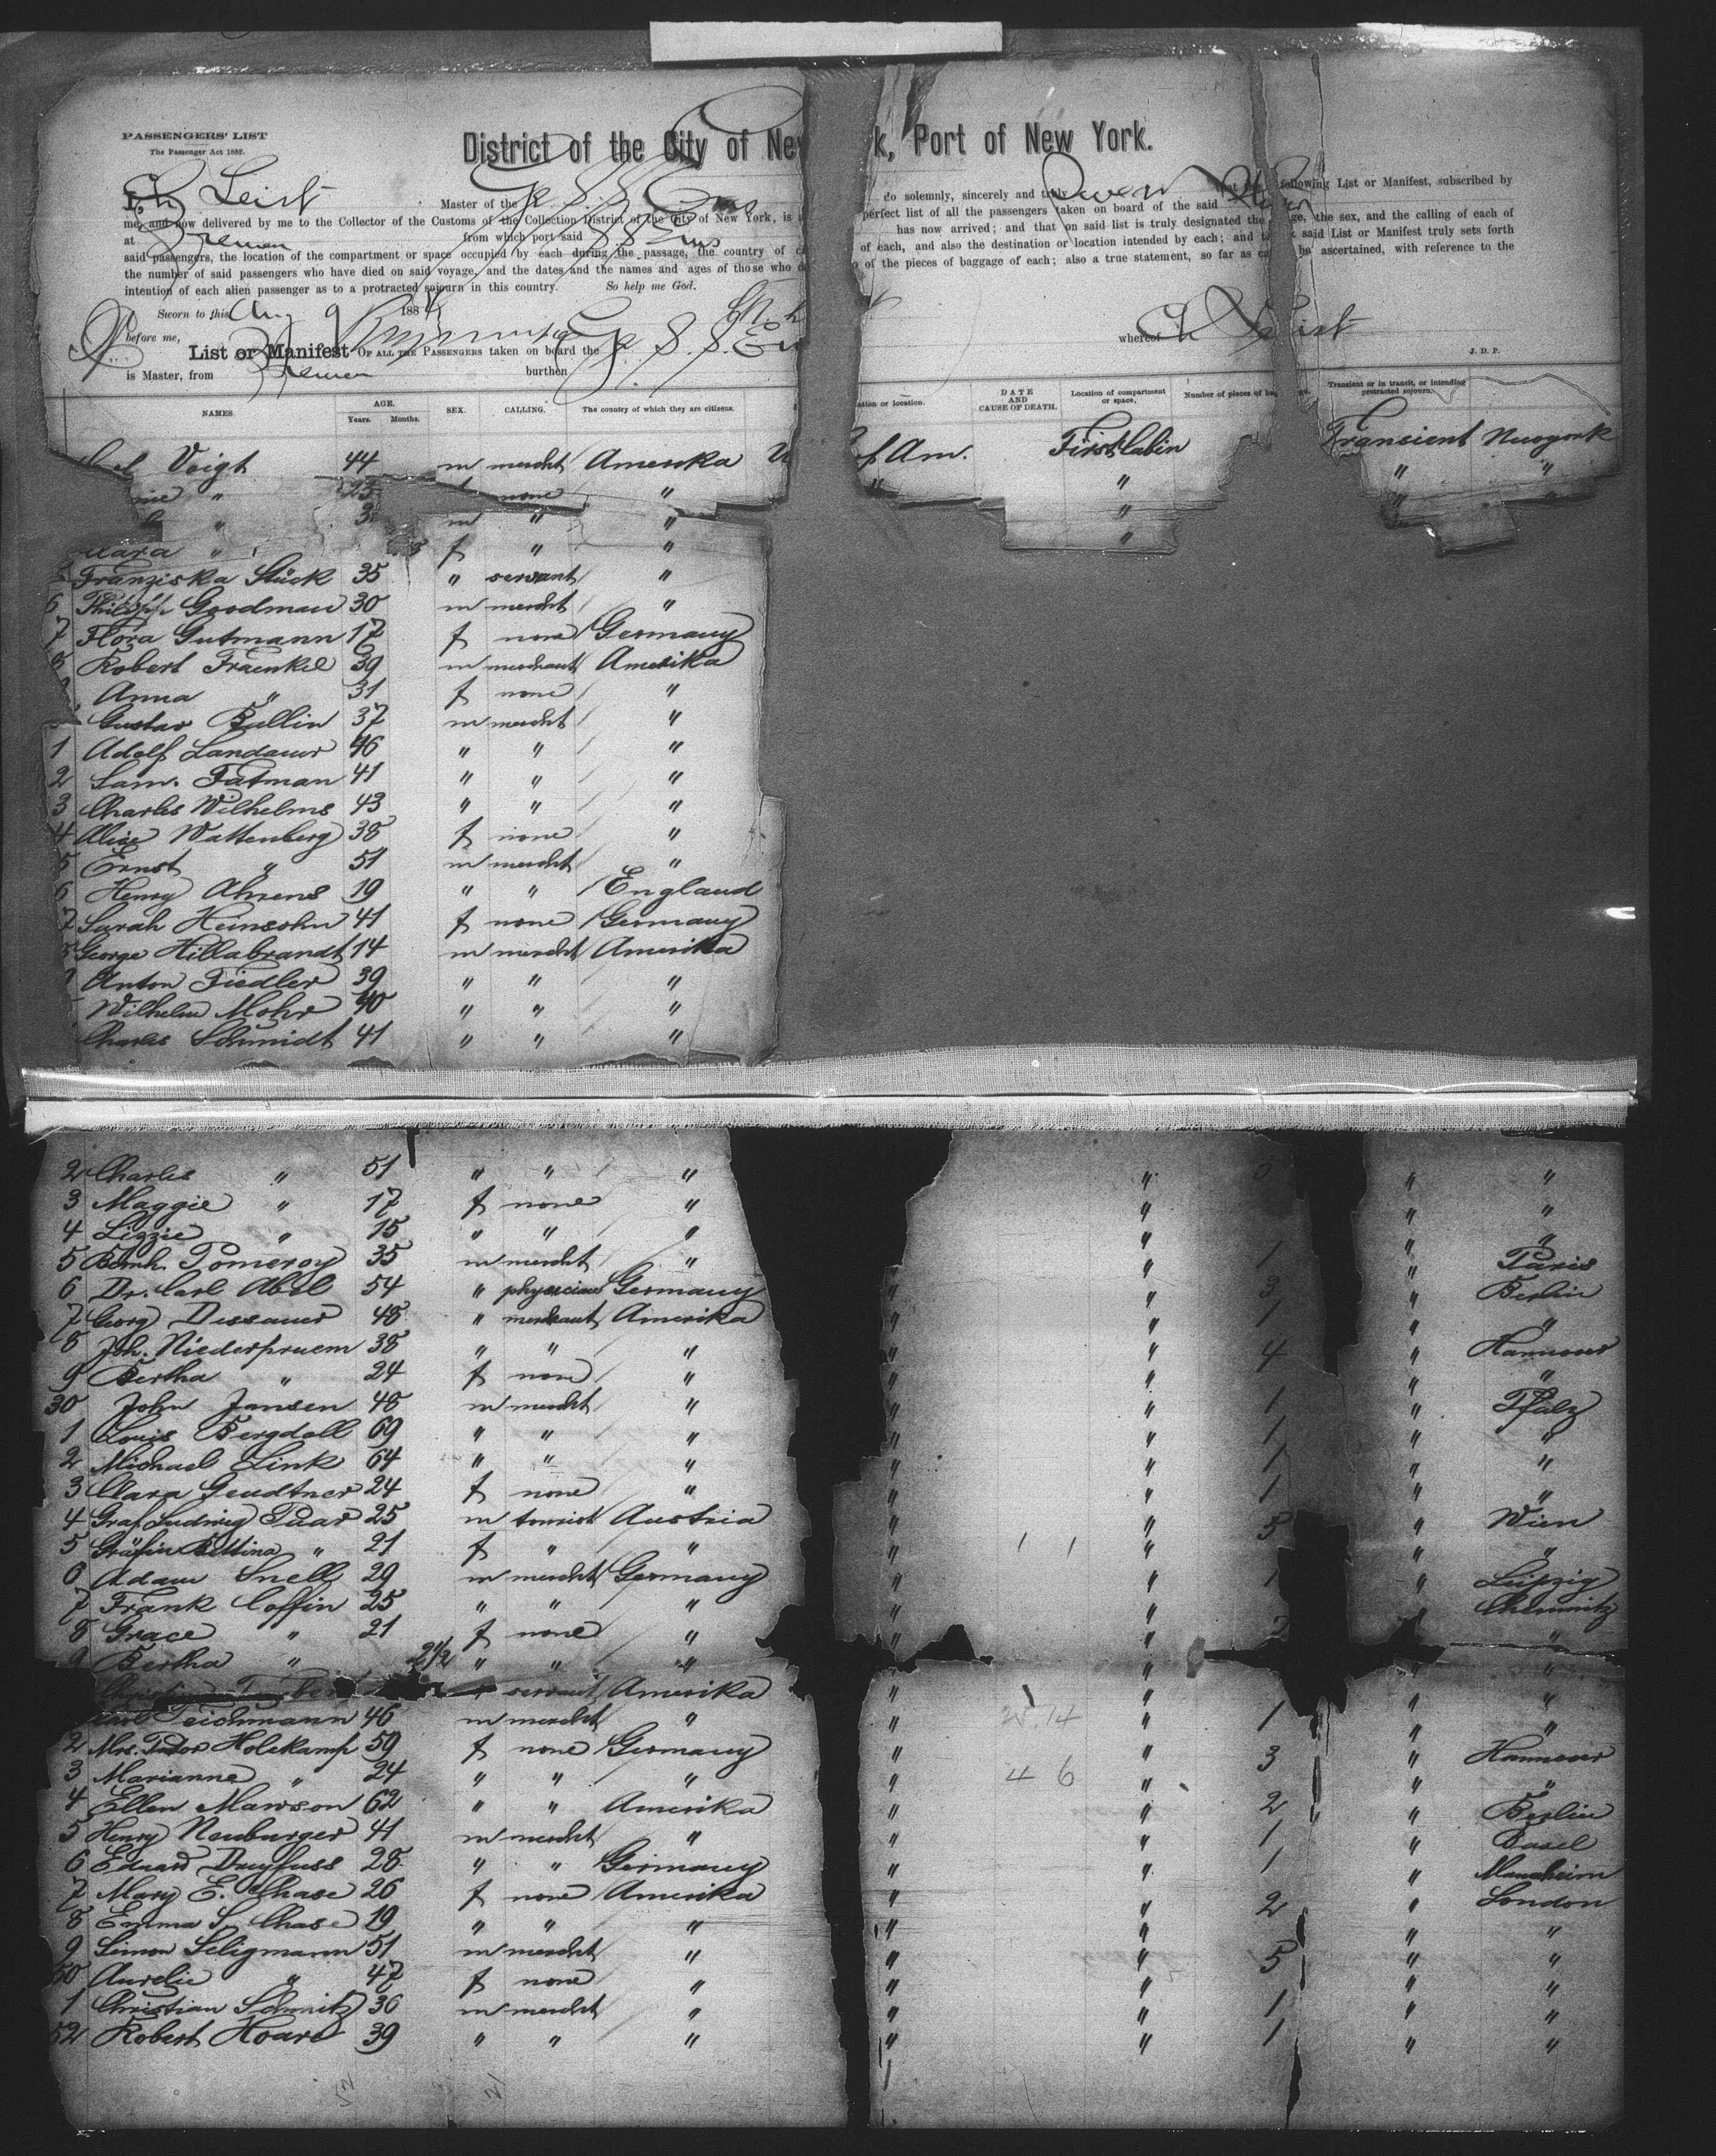 PASSENGERS' LIST
The Passenger Act 1882.
District of the City of New k, Port of New York.
I, Ch Leist Master of the Gr. S. S. Ems do solemnly, sincerely and truly following List or Manifest, subscribed by
me, and now delivered by me to the Collector of the Customs of the Collection District of the City of New York, is a perfect list of all the passengers taken on board of the said
at Bremen from which port said S S Ems has now arrived; and that on said list is truly designated the ge, the sex, and the calling of each of
said passengers, the location of the compartment or space occupied by each during the passage, the country of c of each, and also the destination or location intended by each; and t said List or Manifest truly sets forth
the number of said passengers who have died on said voyage, and the dates and the names and ages of those who d of the pieces of baggage of each; also a true statement, so far as ca be ascertained, with reference to the
intention of each alien passenger as to a protracted sojourn in this country. So help me God.
Sworn to this Aug 9 188
before me,
List or Manifest OF ALL THE PASSENGERS taken on board the Gr. S. S. Em whereof Ch Leist
is Master, from Bremen burthen J. D. P.
NAMES AGE. Years. Months. SEX. CALLING. The country of which they are citizens. ation or location. DATE AND CAUSE OF DEATH. Location of compartment or space. Number of pieces of bag Transient or in transit, or intending protracted sojourn.
Voigt 44 m mercht Amerika U of Am. First Cabin Transient Newyork
" 25 none " " " " "
" 3 m " " " " "
Clara " f " " "
Franziska Stück 35 " servant "
6 Philipp Goodman 30 m mercht "
7 Flora Gutmann 17 f none Germany
8 Robert Fraenkel 39 m merchant Amerika
Anna " 31 f none "
Gustav Ballin 37 m mercht "
1 Adolf Landauer 46 " " "
2 Sam. Fatman 41 " " "
3 Charles Wilhelms 43 " " "
4 Alice Wattenberg 38 f none "
5 Ernst " 51 m mercht "
6 Henry Ahrens 19 " " England
7 Sarah Heinsohn 41 f none Germany
8 George Hillabrandt 14 m mercht Amerika
9 Anton Fiedler 39 " " "
Wilhelm Mohr 40 " " "
Charles Schmidt 41 " " "
2 Charles " 51 " " " " 5 " "
3 Maggie " 17 f none " " " "
4 Lizzie " 15 " " " " " "
5 Bernh. Pomeroy 35 m mercht " " 1 " Paris
6 Dr. Carl Abel 54 " physician Germany " " 3 " Berlin
7 Georg Dessauer 48 " merchant Amerika " " 1 " "
8 Joh. Niederpruem 38 " " " " " 4 " Hannover
9 Bertha " 24 f none " " " " "
30 John Jansen 48 m mercht " " " 1 " Pfalz
1 Louis Bergdoll 69 " " " " " 1 " "
2 Michael Link 64 " " " " " 1 " "
3 Clara Gendtner 24 f none " " " 1 " "
4 Graf Ludwig Paar 25 m tourist Austria " " 5 " Wien
5 Gräfin Bettina " 21 f " " " 1 1 " " "
6 Adam Snell 29 m mercht Germany " " 1 " Leipzig
7 Frank Coffin 25 " " " " " " Chemnitz
8 Grace " 21 f none " " " 2 " "
9 Bertha " 2 1/2 " " " " " " "
servant Amerika " " " "
Carl Teichmann 46 m mercht " " 14 " 1 " "
2 Mrs. Holekamp 59 f none Germany " " 3 " Hannover
3 Marianne " 24 " " " " 4 6 " " "
4 Ellen Mawson 62 " " Amerika " " 2 " Berlin
5 Henry Neuburger 41 m mercht " " " 1 " Basel
6 Eduard Dreyfuss 28 " " Germany " " 1 " Manheim
7 Mary E. Chase 26 f none Amerika " " 2 " London
8 Emma S. Chase 19 " " " " " " "
9 Simon Seligmann 51 m mercht " " " 5 " "
50 Aurelie " 47 f none " " " " "
1 Christian Schmitz 36 m mercht " " " 1 " "
52 Robert Hoare 39 " " " " " 1 " "
52 21